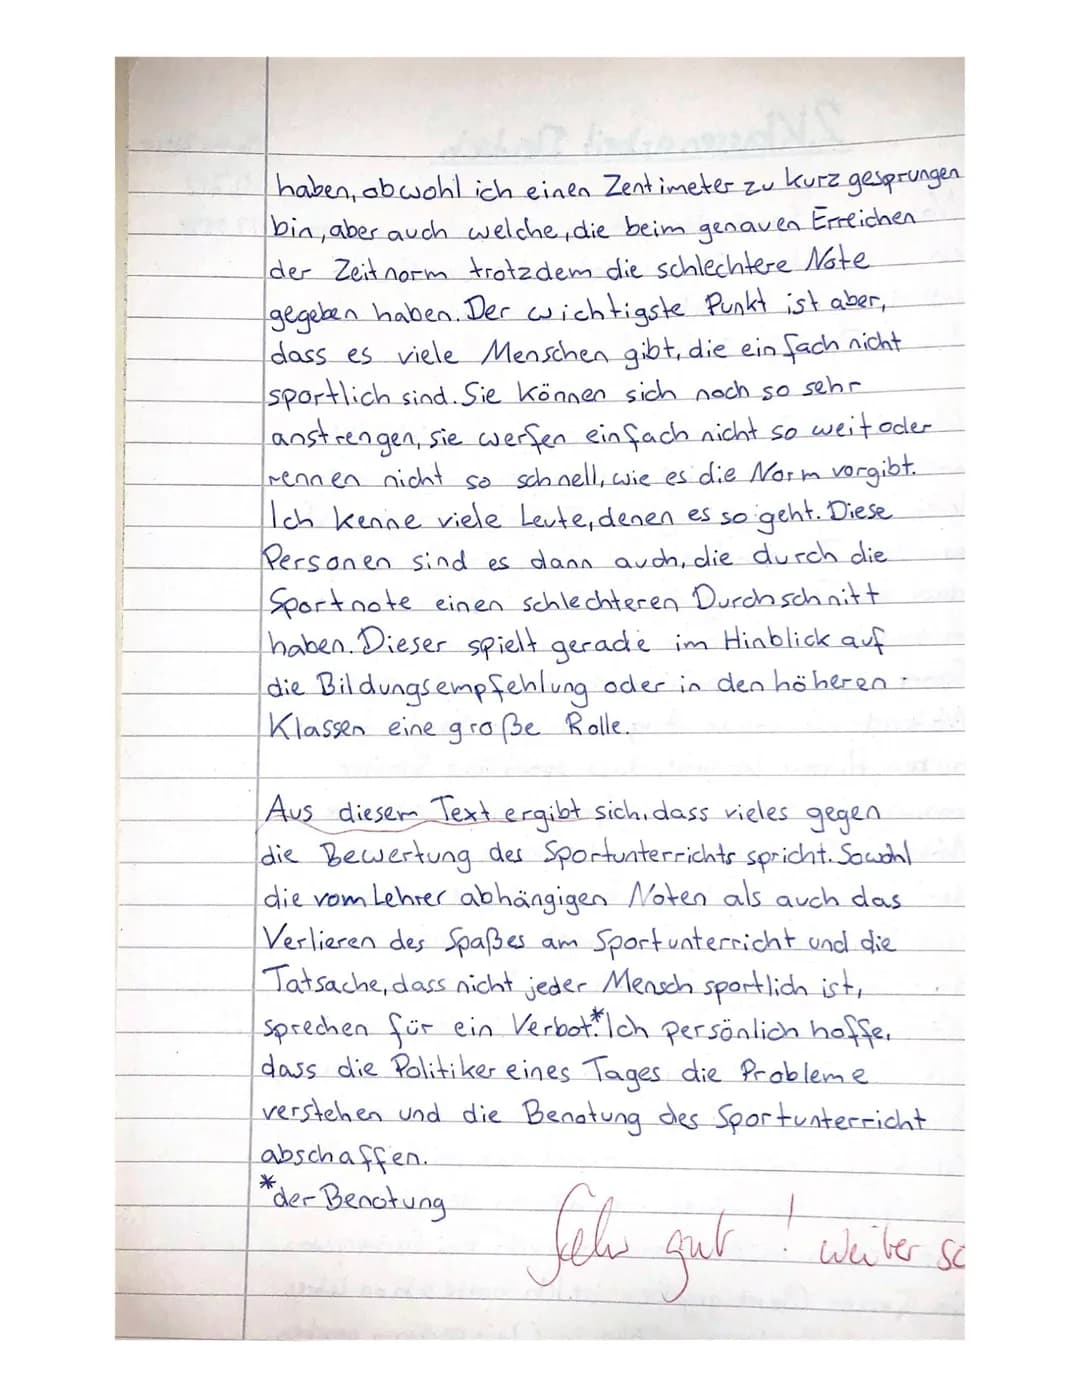 haben, obwohl ich einen Zentimeter zu kurz gesprungen
bin, aber auch welche, die beim genauen Erreichen
der Zeitnorm trotzdem die schlechtere Note
gegeben haben. Der wichtigste Punkt ist aber,
dass es viele Menschen gibt, die einfach nicht
sportlich sind. Sie können sich noch so sehr
anstrengen, sie werfen einfach nicht so weit oder
rennen nicht so schnell, wie es die Norm vorgibt.
Ich kenne viele Leute, denen es so geht. Diese
Personen sind es dann auch, die durch die
Sportnote einen schlechteren Durchschnitt
haben. Dieser spielt gerade im Hinblick auf
die Bildungsempfehlung oder in den höheren
Klassen eine große Rolle.
Aus diesem Text ergibt sich, dass vieles gegen
die Bewertung des Sportunterrichts spricht. Sowohl
die vom Lehrer abhängigen Noten als auch das
Verlieren des Spaßes am Sportunterricht und die
Tatsache, dass nicht jeder Mensch sportlich ist,
sprechen für ein Verbot*. Ich persönlich hoffe,
dass die Politiker eines Tages die Probleme
verstehen und die Benotung des Sportunterricht
abschaffen.
*der Benotung
Sehr gut! weiter so